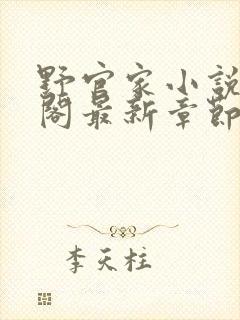 野官家小說
閣最新章節
李天柱